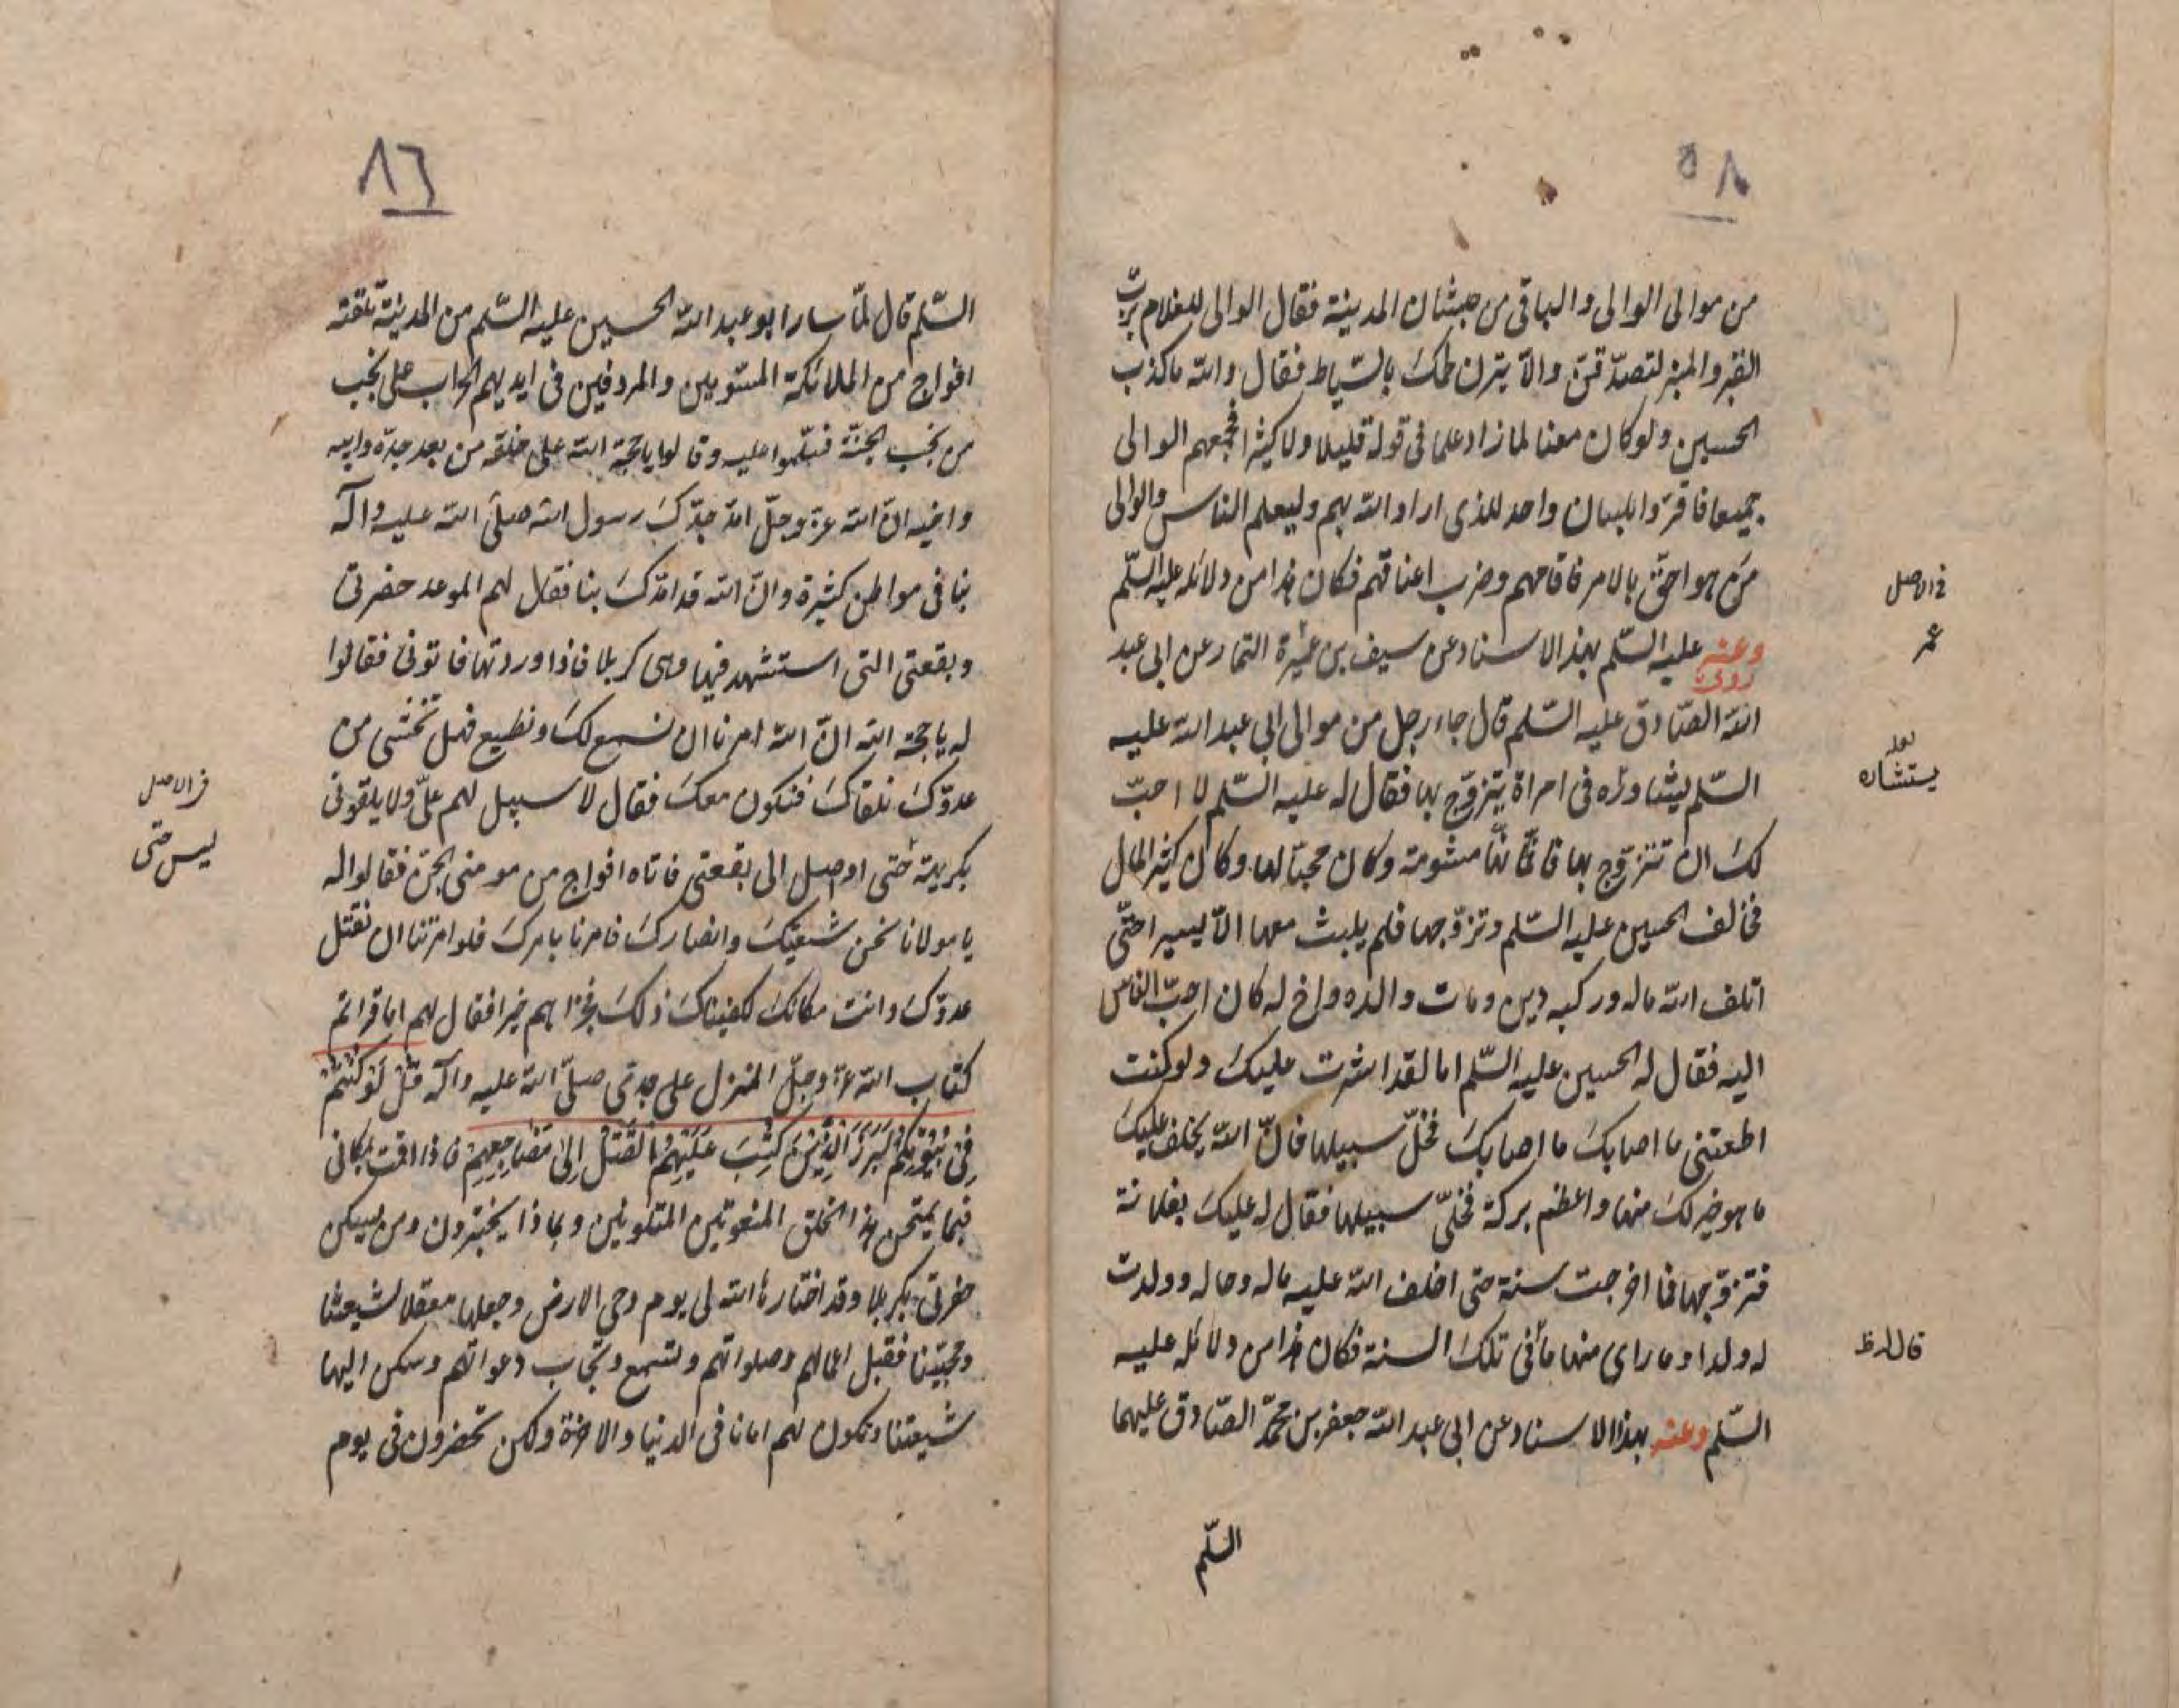 ٨٥
من موالى الوالى والباقى من حبشان المدينة فقال الوالى للغلام بربّ
القبر والمنبر لتصدّقنّ والّا ينزلن لحمك بالسّياط فقال والله ما كذب
الحسين ولو كان معنا لما زاد علما فى قوله قليلا ولا كثيرا فجمعهم الوالى
جميعا فاقرّوا بلسان واحد للذى اراد الله بهم وليعلم الناس والوالى
من هو احقّ بالامر فاقامهم وضرب اعناقهم فكان هذا من دلائله عليه السّلم
وعنه عليه السّلم بهذا الاسناد عن سيف بن عميرة التمار عن ابى عبد
روى
الله الصّادق عليه السّلم قال جاء رجل من موالى ابى عبد الله عليه
السّلم يشاوره فى امراة يتزوّج بها فقال له عليه السّلم لا احبّ
لك ان تتزوّج بها فانّها مشومة وكان محبّا لها وكان كثير المال
فخالف الحسين عليه السّلم وتزوّجها فلم يلبث معها الّا يسيرا حتّى
اتلف الله ماله وركبه دين ومات والده واخ له كان احبّ الناس
اليه فقال له الحسين عليه السّلم اما لقد اشرت عليك ولو كنت
اطعتنى ما اصابك ما اصابك فخلّ سبيلها فانّ الله يخلف عليك
ما هو خير لك منها واعظم بركة فخلّى سبيلها فقال له عليك بفلانة
فتزوّجها فما خرجت سنة حتى اخلف الله عليه ماله وحاله وولدت
له ولدا وما راى منها ما فى تلك السنة فكان هذا من دلائله عليه
السّلم وعنه بهذا الاسناد عن ابى عبد الله جعفر بن محمّد الصّادق عليهما
السّلم
فى الاصل
عمر
يستشاره
٨٦
السّلم قال لمّا سار ابو عبد الله الحسين عليه السّلم من المدينة تلقته
افواج من الملائكة المسوّمين والمردفين فى ايديهم الحراب على نجب
من نجب الجنّة فسلّموا عليه وقالوا يا حجّة الله على خلقه من بعد جدّه وابيه
واخيه انّ الله عزّ وجلّ امدّ جدّك رسول الله صلّى الله عليه وآله
بنا فى مواطن كثيرة وانّ الله قد امدّك بنا فقال لهم الموعد حضرتى
وبقعتى التى استشهد فيها وهى كربلا فاذا وردتها فاتونى فقالوا
له يا حجّة الله انّ الله امرنا ان نسمع لك ونطيع فهل تخشى من
عدوّك نلقاك فنكون معك فقال لا سبيل لهم علىّ ولا يلقونى
بكريهة حتى اوصل الى بقعتى فاتاه افواج من مومنى الجنّ فقالوا له
يا مولانا نحن شيعتك وانصارك فامرنا بامرك فلو امرتنا ان نقتل
عدوّك وانت مكانك لكفيناك ذلك فجزاهم خيرا فقال لهم اما قراتم
كتاب الله عزّ وجلّ المنزل على جدّى صلّى الله عليه وآله قُلْ لَوْ كُنْتُمْ
فِى بُيُوتِكُمْ لَبَرَزَ الَّذِينَ كُتِبَ عَلَيْهِمُ الْقَتْلُ اِلىٰ مَضَاجِعِهِمْ فاذا اقمت بمكانى
فبما يمتحن هذا الخلق المنعوتين المتكونين وبماذا يختبرون ومن يسكن
حفرتى بكربلا وقد اختارها الله لى يوم دحى الارض وجعلها معقلا لشيعتنا
ومحبّينا فقبل اعمالهم وصلواتهم ولتسمع وتجاب دعواتهم وسكن اليها
شيعتنا وتكون لهم امانا فى الدنيا والاخرة ولكن تحضرون فى يوم
فى الاصل
ليس حتى